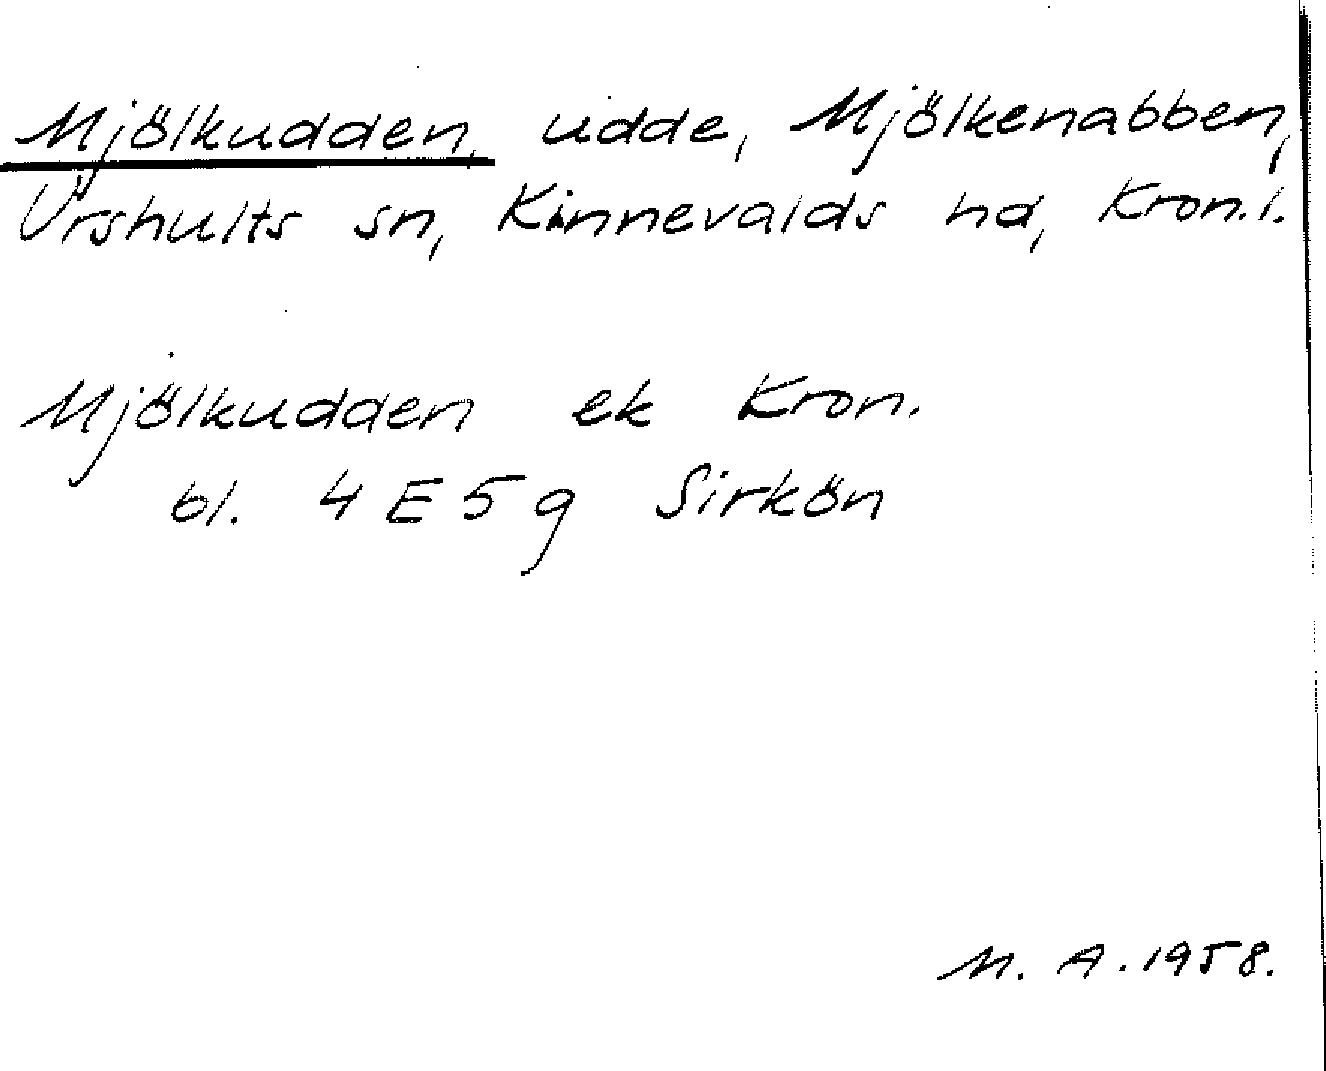 Mjölkudden, udde, Mjölkenabben,
Urshults sn, Kinnevalds hd, Kron.l.
Mjölkudden ek Kron.
bl. 4 E 5 g Sirkön
M. A. 1958.